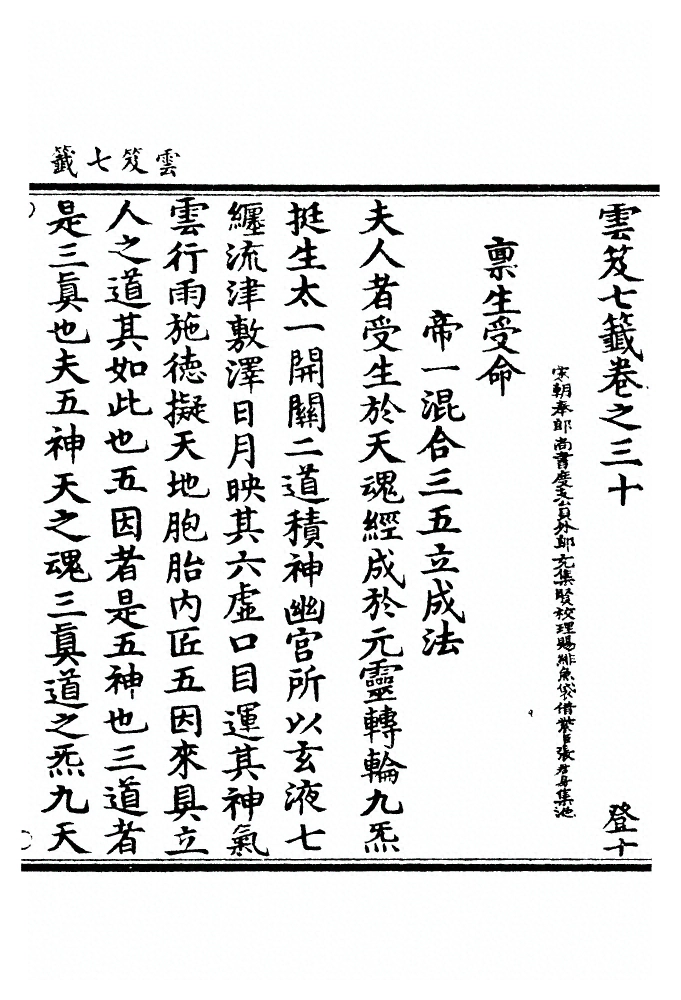 雲笈七籤
雲笈七籤卷之三十 登十
宋朝奉郎尚書度支員外郎充集賢校理賜緋魚袋借紫臣張君房集進
稟生受命
帝一混合三五立成法
夫人者受生於天魂經成於元靈轉輪九炁
挺生太一開關二道積神幽宫所以玄液七
纏流津敷澤日月映其六虛口目運其神氣
雲行雨施德擬天地胞胎内匠五因來具立
人之道其如此也五因者是五神也三道者
是三眞也夫五神天之魂三眞道之炁九天